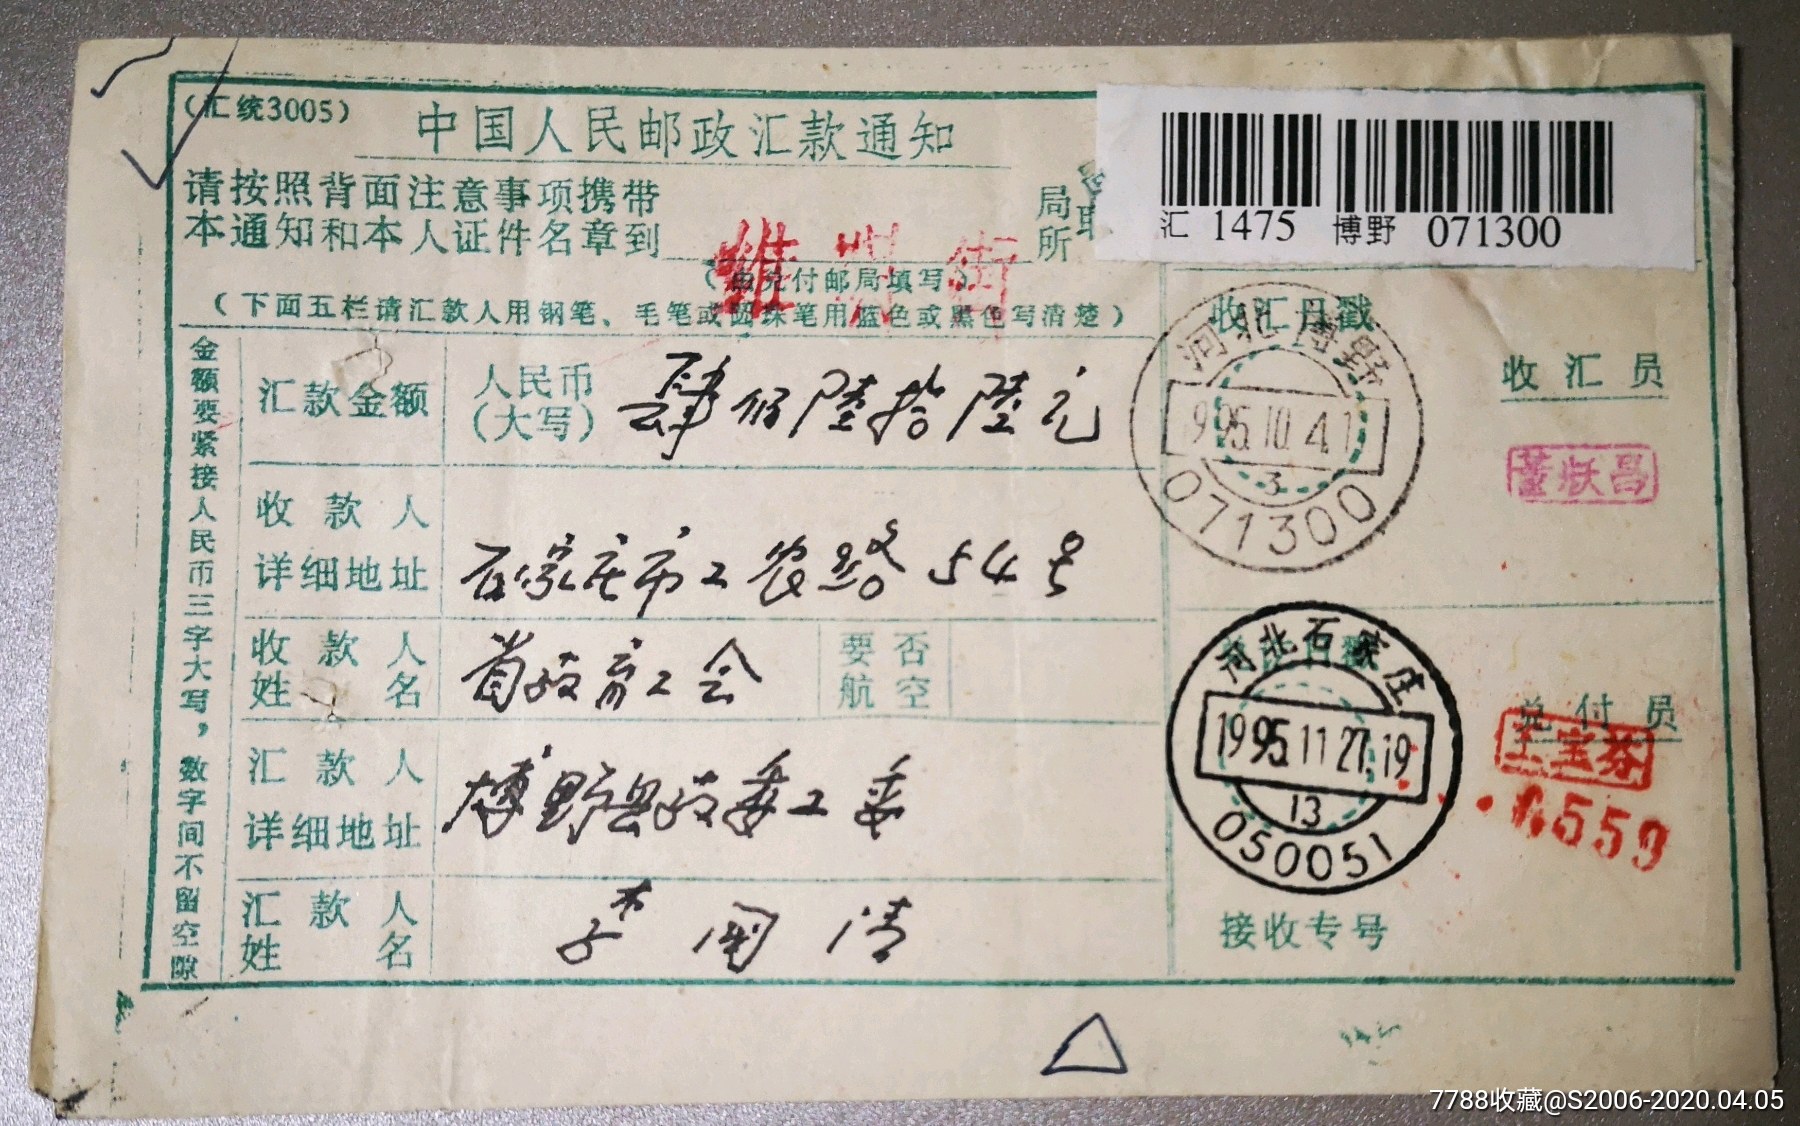 (汇统3005)
中国人民邮政汇款通知
请按照背面注意事项携带
本通知和本人证件名章到
维 街
局
所
取
(由兑付邮局填写)
(下面五栏请汇款人用钢笔、毛笔或圆珠笔用蓝色或黑色写清楚)
汇 1475 博野 071300
金额要紧接人民币三字大写，数字间不留空隙
汇款金额
人民币
(大写)
肆佰陆拾陆元
收款人
详细地址
石家庄市工农路54号
收款人
姓名
省政育工会
要否
航空
汇款人
详细地址
博野县教委工委
汇款人
姓名
李国清
收汇日戳
河北博野
1995.10.4.1
3
071300
收汇员
河北石家庄
1995.11.27.19
13
050051
兑付员
王宝芬
559
接收专号
7788收藏@S2006-2020.04.05